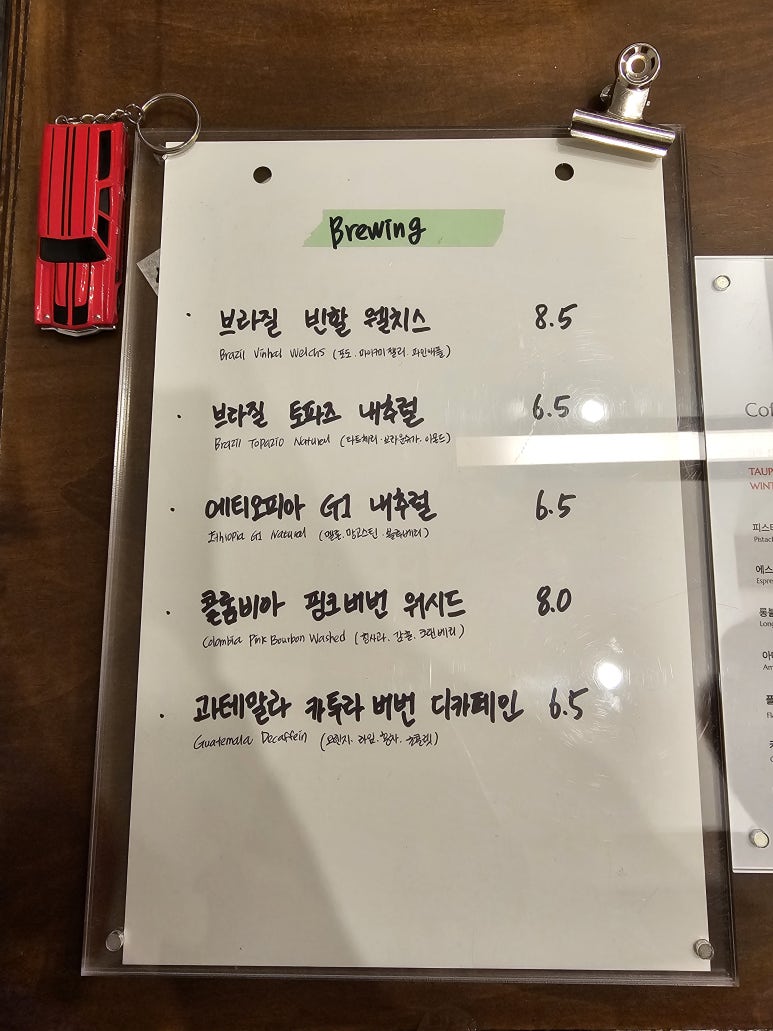 Brewing
브라질 빈할 웰치스 8.5
Brazil Vinhal Welchs (포도. 마이구미 젤리. 파인애플)
브라질 토파즈 내추럴 6.5
Brazil Topazio Natural (다크체리. 브라운슈가. 아몬드)
에티오피아 G1 내추럴 6.5
Ethiopia G1 Natural (멜론. 망고스틴. 블랙베리)
콜롬비아 핑크버번 워시드 8.0
Colombia Pink Bourbon Washed (청사과. 감귤. 크랜베리)
과테말라 카투라 버번 디카페인 6.5
Guatemala Decaffein (오렌지. 라임. 초콜렛)
TAUP
WINT